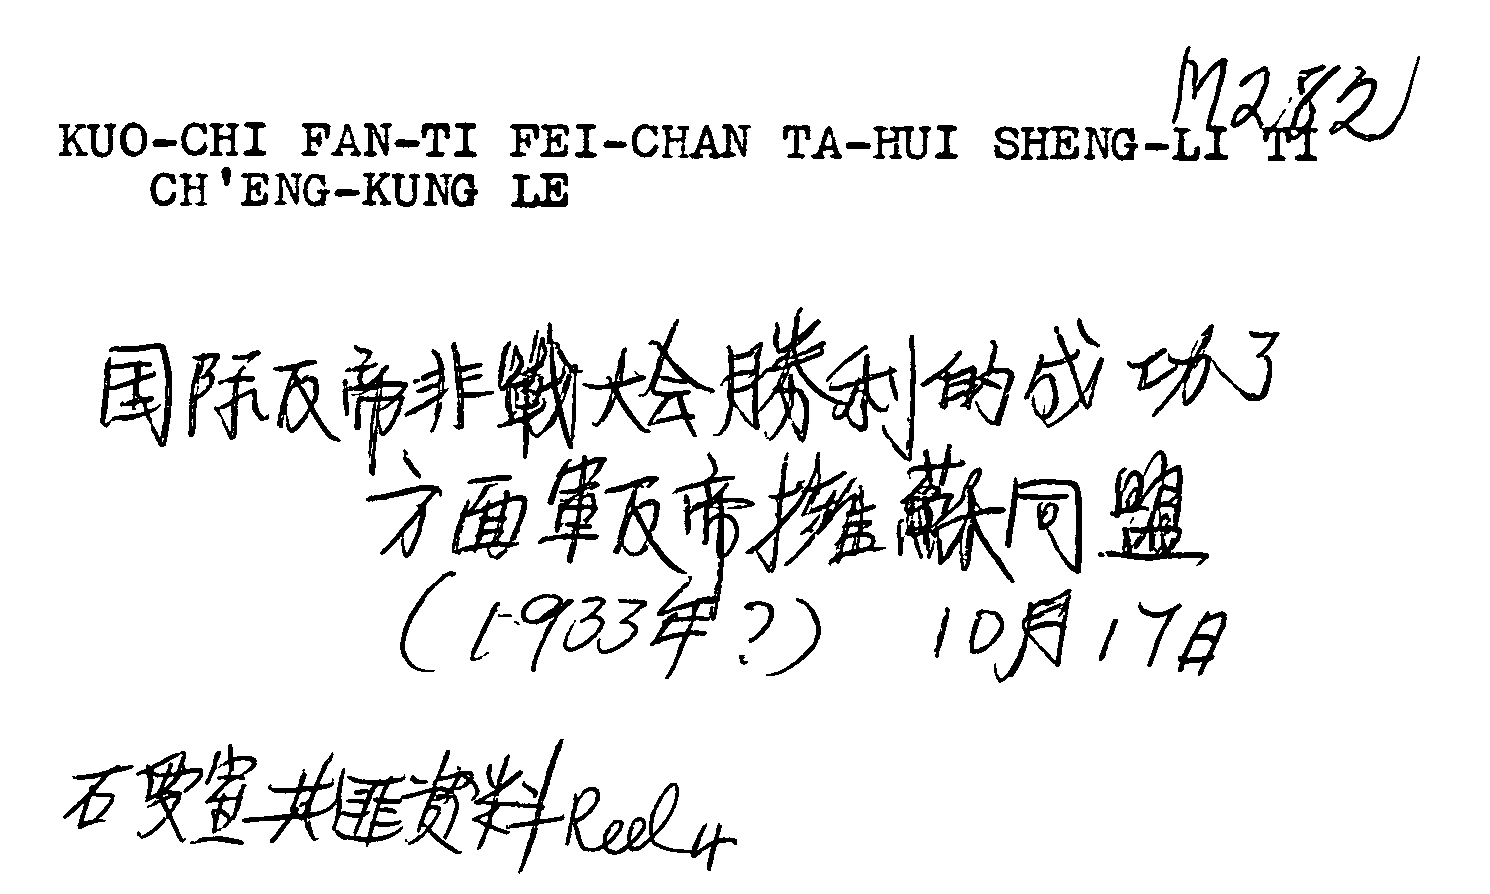 M282
KUO-CHI FAN-TI FEI-CHAN TA-HUI SHENG-LI TI
CH'ENG-KUNG LE
国际反帝非戰大会勝利的成功了
方面軍反帝擁蘇同盟
(1933年?) 10月17日
石叟室共匪資料Reel 4